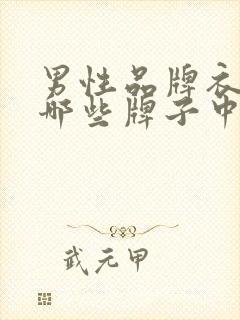 男性品牌衣
哪些牌子中
武元甲